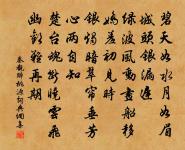 碧天如水月如眉
城頭銀漏遲
綠波風動畫船移
嬌羞初見時
銀燭暗翠簾垂芳
心兩自知
楚台魂斷曉雲飛
幽歡難再期
秦觀醉桃源詞